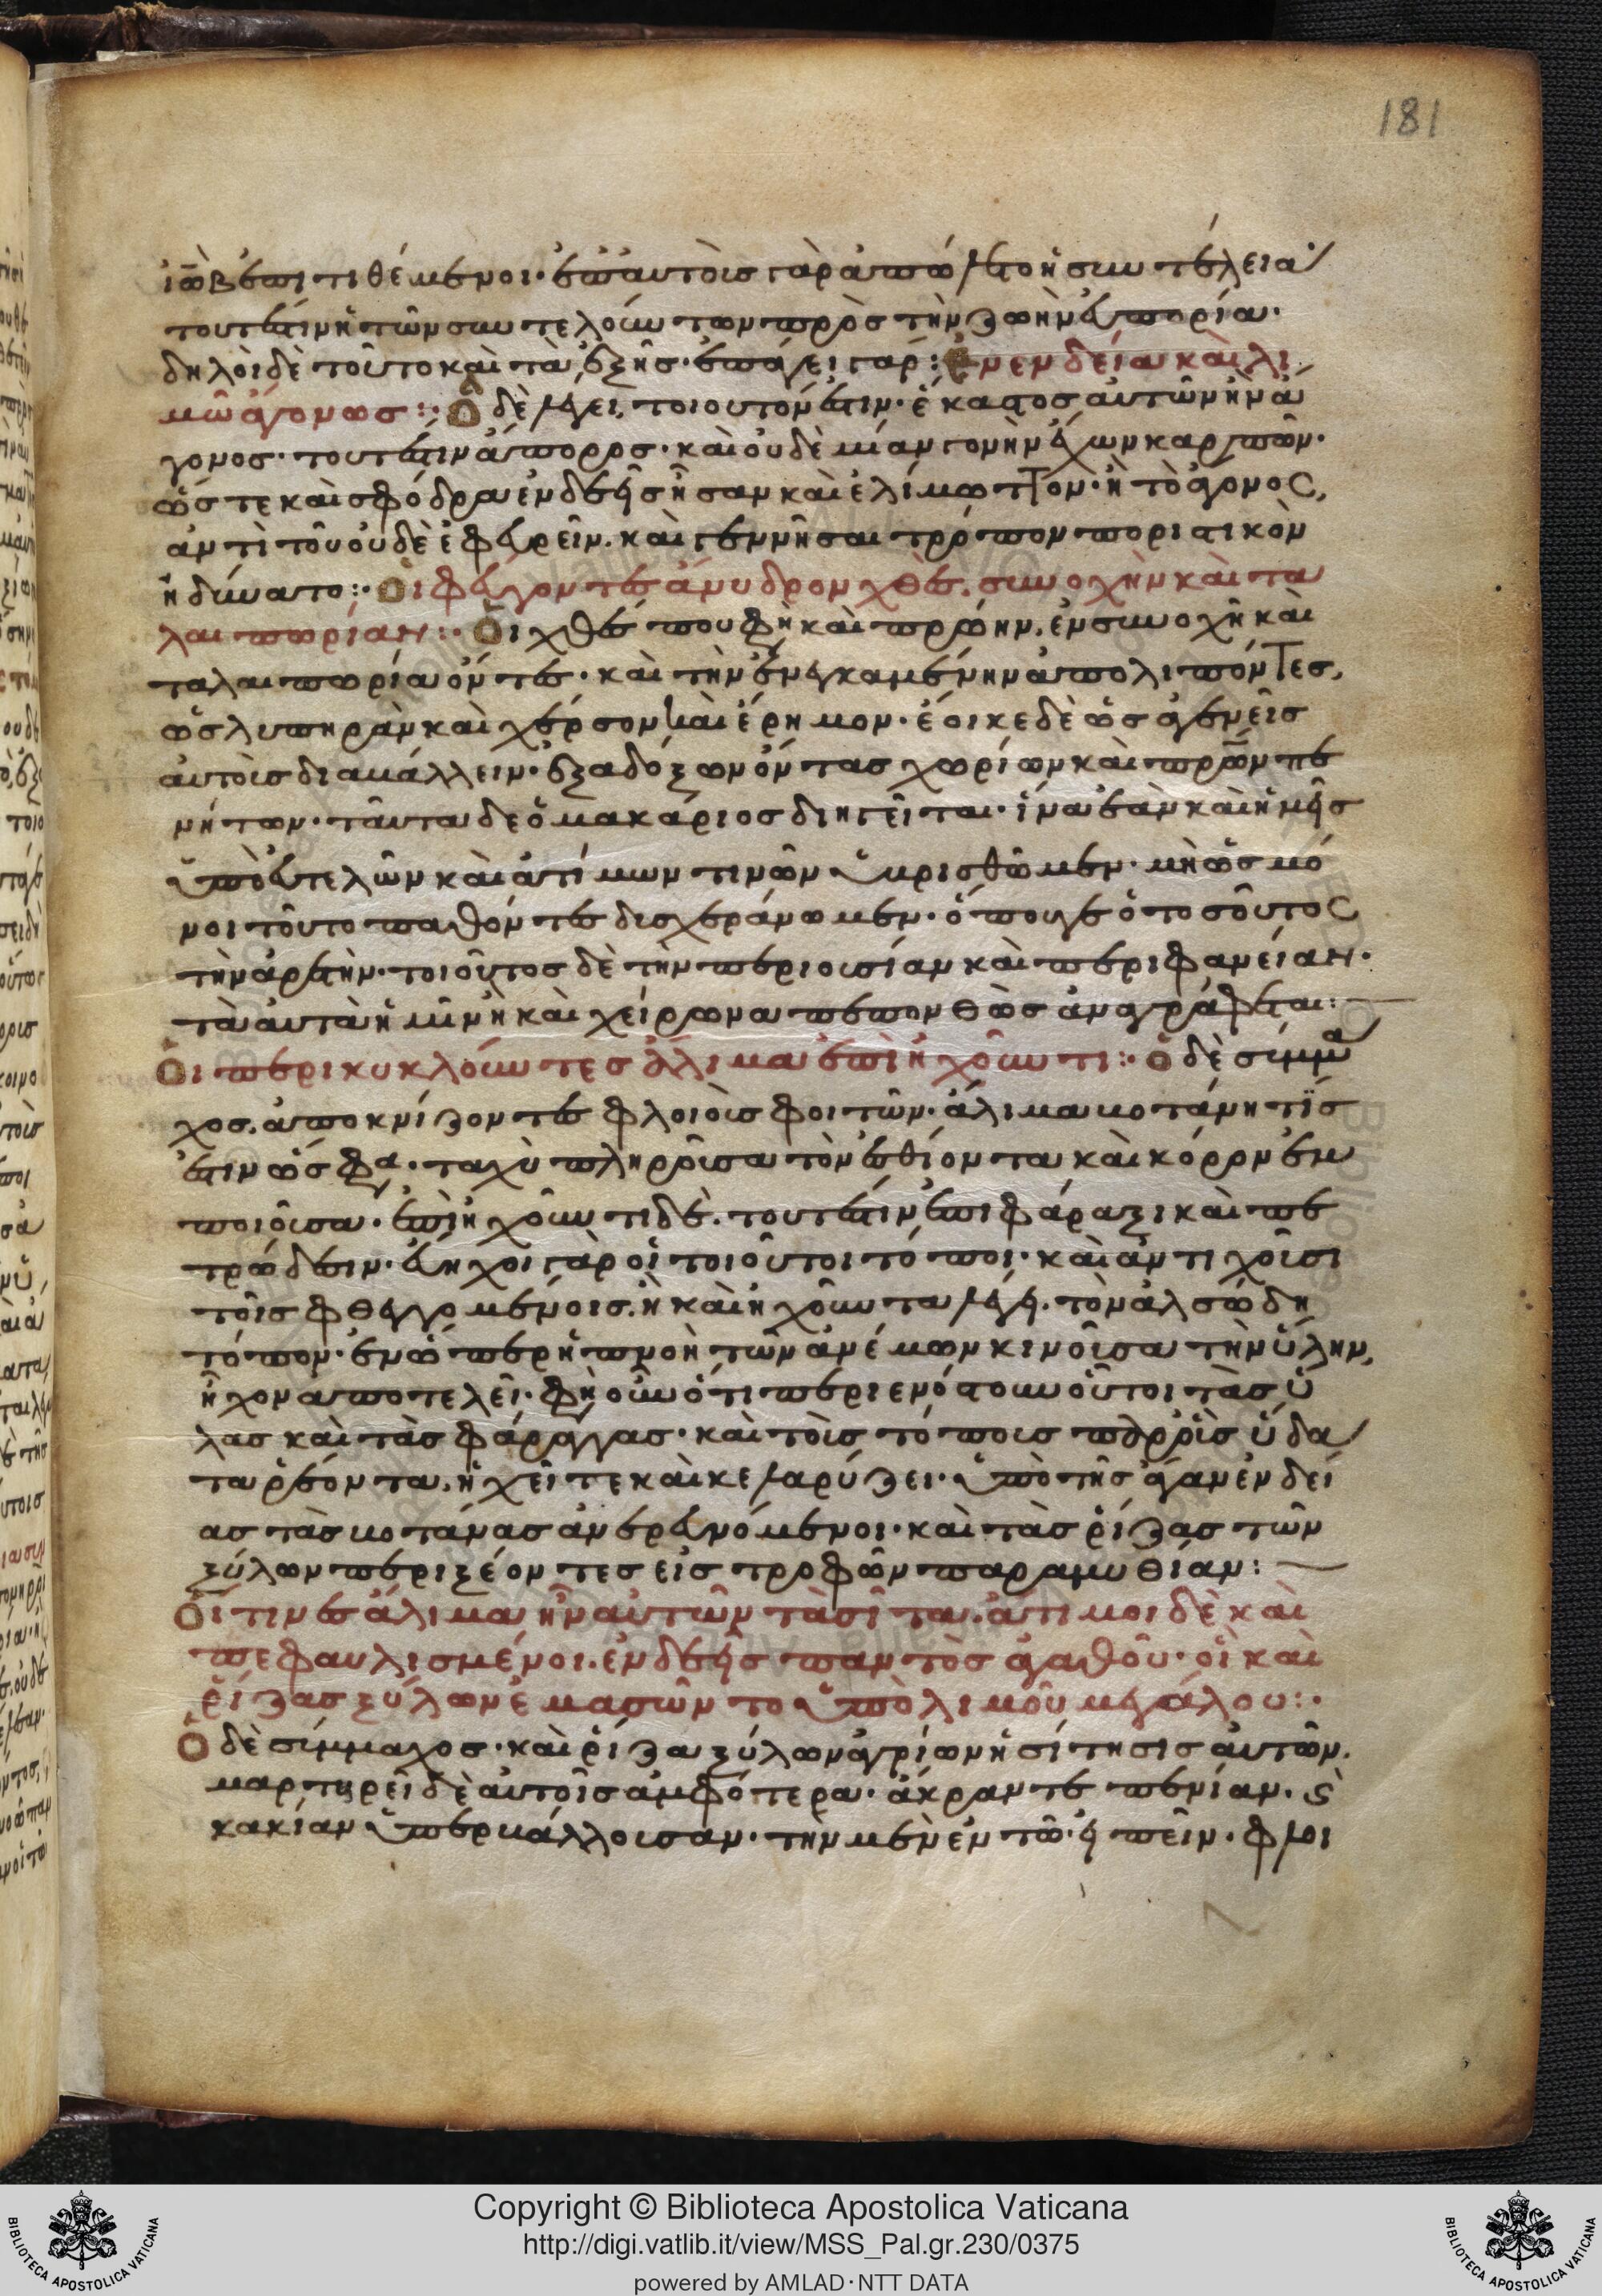 181
ἰὼβ ἐπιτιθέμενοι· ἐπ' αὐτοῖς γὰρ ἀπώλετο ἡ συντέλεια
τουτέστιν ἡ τῶν συντελούντων πρὸς τὴν ζωὴν εὐπορία·
δηλοῖ δὲ τοῦτο καὶ τὰ ἑξῆς· ἐπάγει γάρ: Ἐν ἐνδεία καὶ λι
μῶ ἄγονος:· Ὃ δὲ λέγει, τοιοῦτόν ἐστιν· ἕκαστος αὐτῶν ἦν ἄ
γονος· τουτέστιν ἄπορος· καὶ οὐδεμίαν γονὴν ἔχων καρπῶν·
ὥστε καὶ σφόδρα ἐνδεεῖς ἦσαν καὶ ἐλίμωττον· ἢ τὸ ἄγονος,
ἀντὶ τοῦ οὐδὲ ἐφευρεῖν· καὶ γεννῆσαι τρόπον ποριστικὸν
ἠδύνατο:· Οἱ φεύγοντες ἄνυδρον χθὲς. συνοχὴν καὶ τα
λαιπωρίαν:· Οἱ χθές που φησὶ καὶ πρώην, ἐν συνοχῆ καὶ
ταλαιπωρία ὄντες· καὶ τὴν ἐνεγκαμένην ἀπολιπόντες,
ὡς λυπηρὰν καὶ χέρσον καὶ ἔρημον· ἔοικε δὲ ὡς ἀγενεῖς
αὐτοὺς διαβάλλειν· ἐξ ἀδόξων ὄντας χωρίων καὶ πρώην πε
νήτων· ταῦτα δὲ ὁ μακάριος διηγεῖται· ἵνα ἐὰν καὶ ἡμεῖς
ὑπὸ εὐτελῶν καὶ ἀτίμων τινῶν ὑβρισθῶμεν· μὴ ὡς μό
νοι τοῦτο παθόντες δυσχεράνωμεν· ὅπουγε ὁ τοσοῦτος
τὴν ἀρετὴν· τοιοῦτος δὲ τὴν περιουσίαν καὶ περιφάνειαν·
τὰ αὐτὰ ἡμῖν ἢ καὶ χείρωνα πεπονθὼς ἀναγράφεται:
Οἱ περικυκλοῦντες ἅλιμα ἐπὶ ἠχοῦντι:· ὁ δὲ σύμμα
χος. ἀποκνίζοντες φλοιοὺς φυτῶν· ἅλιμα βοτάνη τίς
ἐστιν ὥς φασι· ταχὺ πληροῦσα τὸν ἐσθίοντα καὶ κόρον ἐμ
ποιοῦσα· ἐπὶ ἠχοῦντι δὲ· τουτέστιν ἐπὶ φάραγξι καὶ πε
τρώδεσιν· εὔηχοι γὰρ οἱ τοιοῦτοι τόποι· καὶ ἀντηχοῦσι
τοῖς φθεγγομένοις· ἢ καὶ ἠχοῦντα λέγει· τὸν ἀλσώδη
τόπον· ἐν ὧπερ ἡ πνοὴ τῶν ἀνέμων κινοῦσα τὴν ὕλην,
ἦχον ἀποτελεῖ· φησὶν οὖν ὅτι περιενόστουν οὗτοι τὰς ὕ
λας καὶ τὰς φάραγγας· καὶ τοῖς τόποις περὶ οἷς ὕδα
τα ῥέοντα, ἠχεῖ τε καὶ κελαρύζει· ὑπὸ τῆς ἄγαν ἐνδεί
ας τὰς βοτάνας ἀνερευνόμενοι· καὶ τὰς ῥίζας τῶν
ξύλων περιξέοντες εἰς τροφῶν παραμυθίαν:
Οἵτινες ἅλιμα ἦν αὐτῶν τὰ σῖτα. ἄτιμοι δὲ καὶ
πεφαυλισμένοι. ἐνδεεῖς παντὸς ἀγαθοῦ· οἳ καὶ
ῥίζας ξύλων ἐμασῶντο ὑπὸ λιμοῦ μεγάλου:·
Ὁ δὲ σύμμαχος· καὶ ῥίζα ξύλων ἀγρίων ἡ σίτησις αὐτῶν.
μαρτυρεῖ δὲ αὐτοῖς ἀμφότερα· ἄκραν τε πενίαν· καὶ
κακίαν ὑπερβάλλουσαν· τὴν μὲν ἐν τῶ εἰπεῖν· φλοι
Copyright © Biblioteca Apostolica Vaticana
http://digi.vatlib.it/view/MSS_Pal.gr.230/0375
powered by AMLAD·NTT DATA
BIBLIOTECA APOSTOLICA VATICANA
BIBLIOTECA APOSTOLICA VATICANA